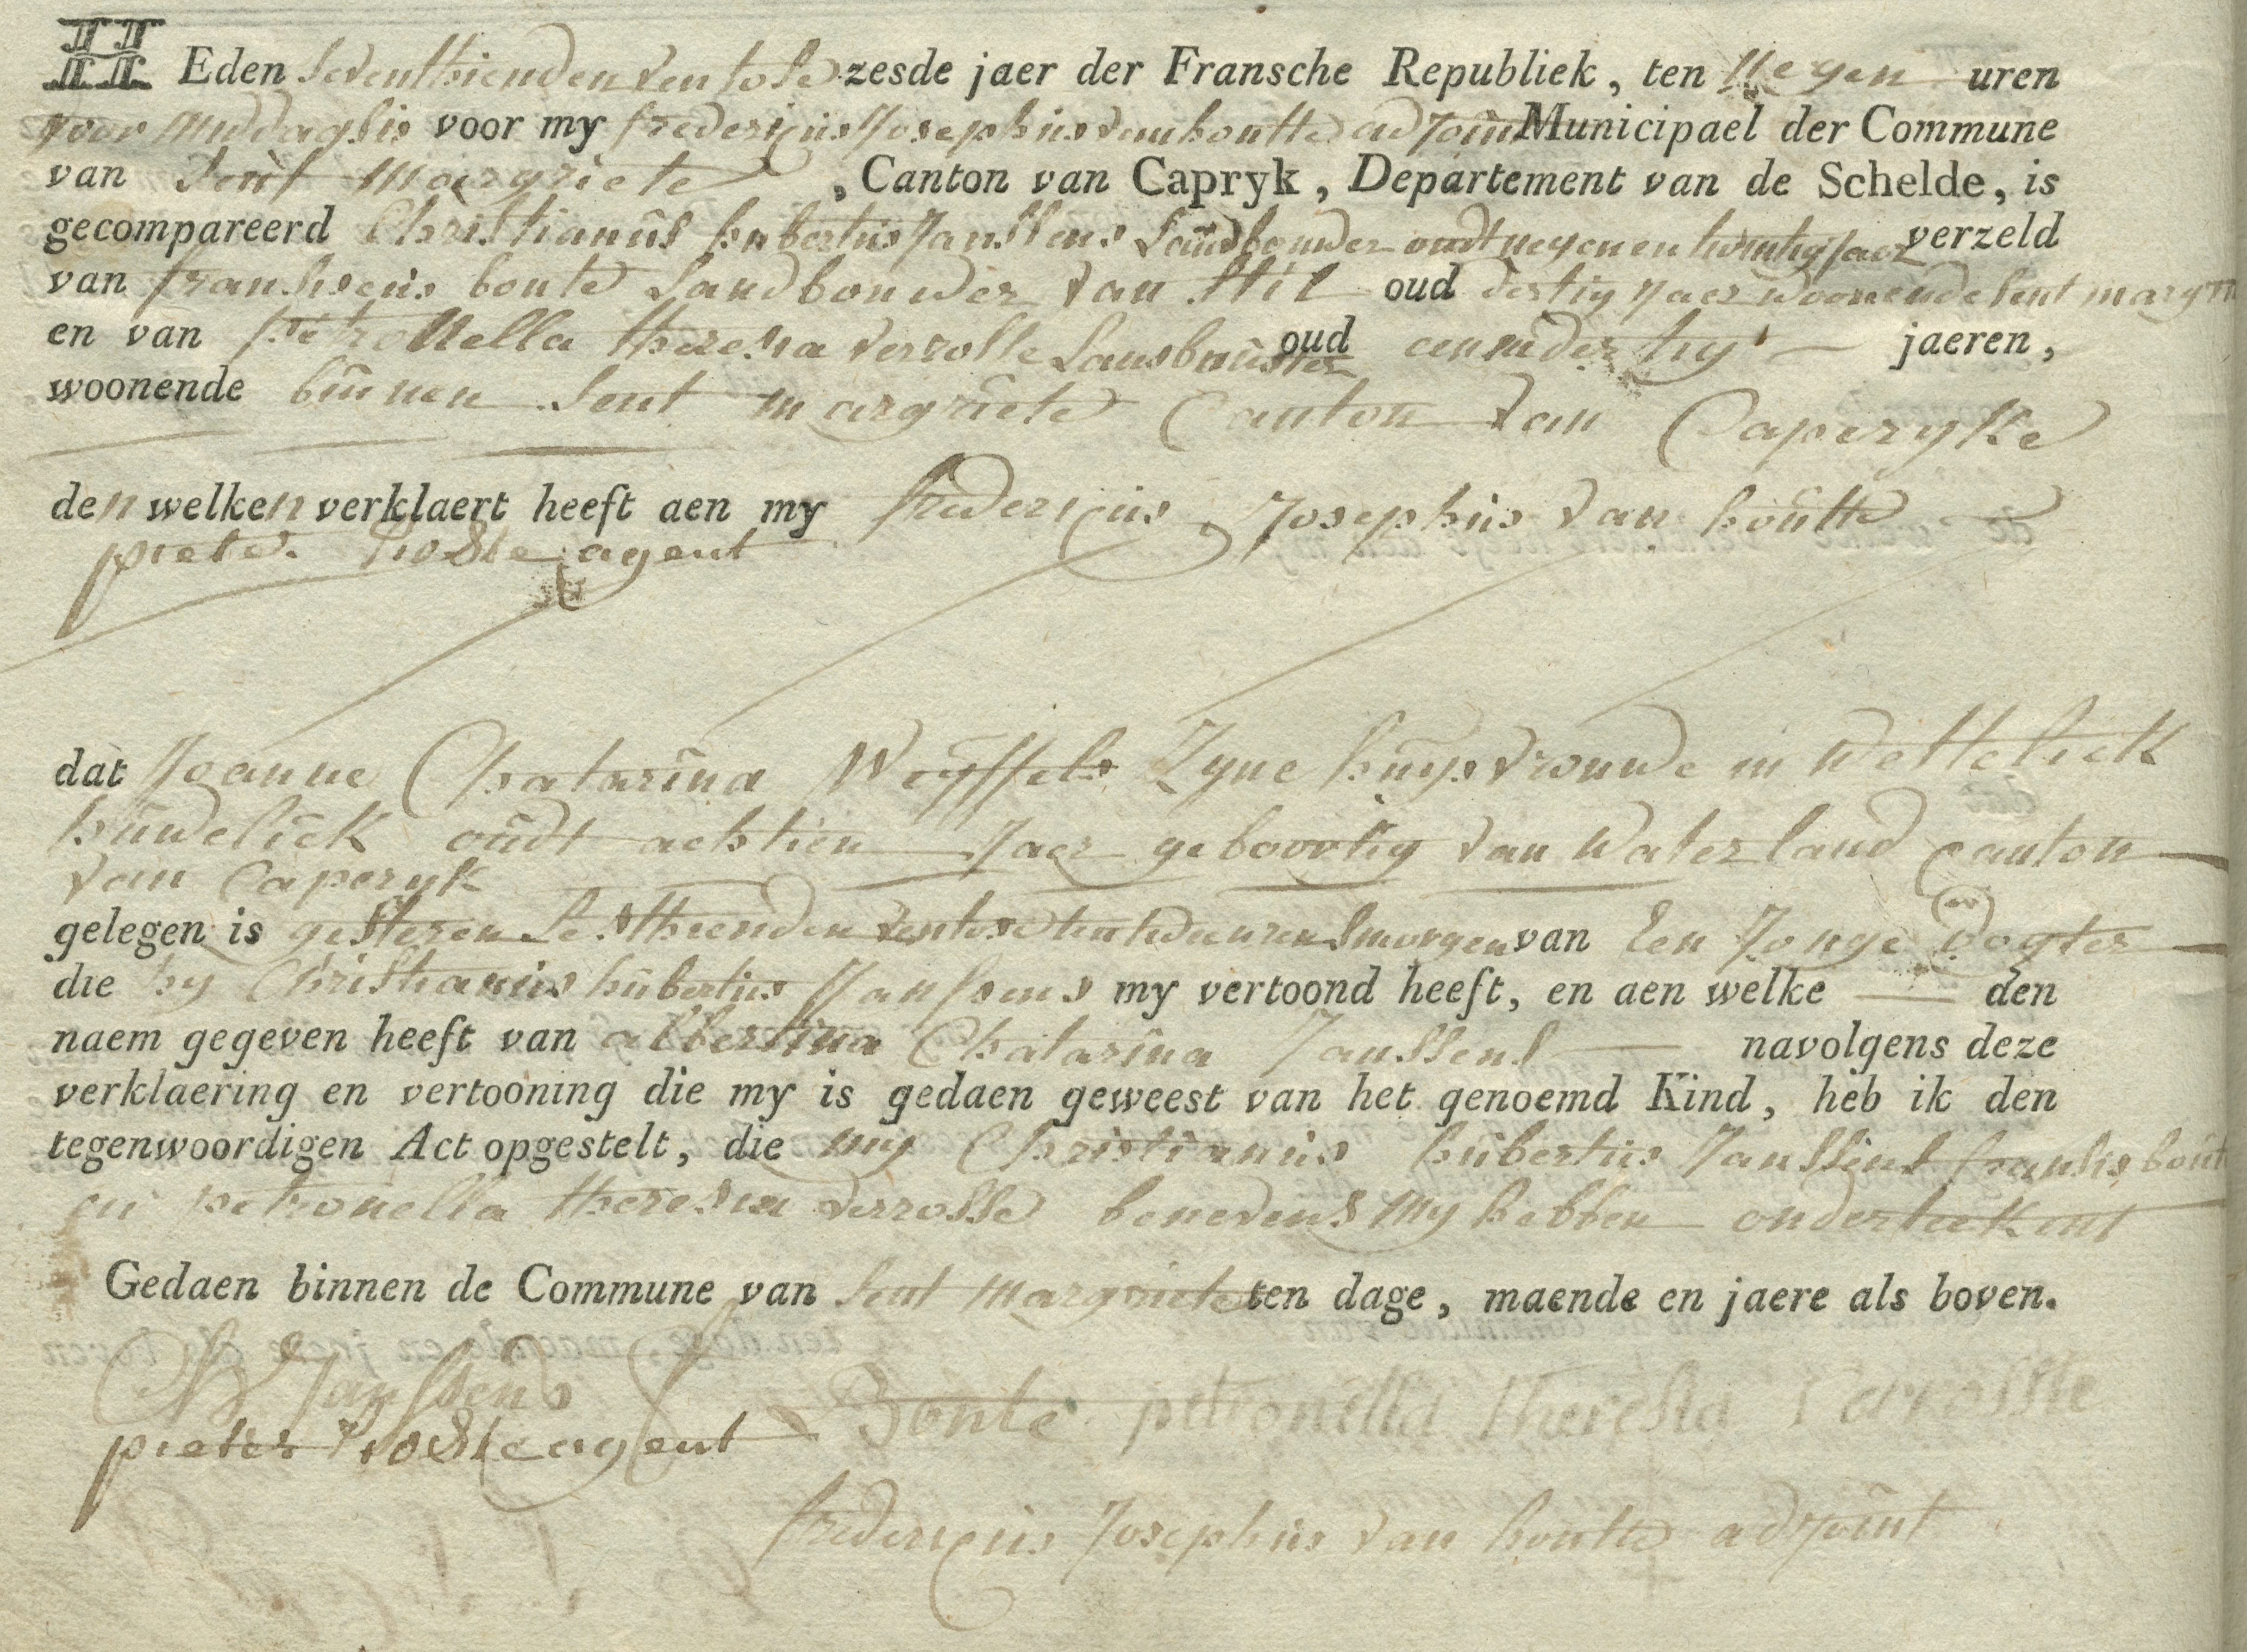 HEden seventhienden ventose zesde jaer der Fransche Republiek, ten negen uren
voor middaghs voor my fredericus Josephus van houtte adjoint Municipael der Commune
van sent margriete, Canton van Capryk, Departement van de Schelde, is
gecompareerd Christianus hubertus Janssens landbouder oudt negenentwintig jaer verzeld
van franssus bonte landbouwer van stil oud dertig jaer woonende sent margri
en van petronella theresia verrosse oud eenenderty jaeren,
woonende binnen sent margriete Canton van Caperyke
den welken verklaert heeft aen my fredericus Josephus van houtte
pieter agent
dat Joanne Chatarina Weyffels Zyne huysvrouwe in wettelick
huwelick oudt achtien Jaer geboortig van waterland canton
van Caperyk
gelegen is gisteren sesthienden ventose smorgens van Een Jonge dogter
die hy Christianus hubertus Janssens my vertoond heeft, en aen welke den
naem gegeven heeft van albertina Chatarina Janssens navolgens deze
verklaering en vertooning die my is gedaen geweest van het genoemd Kind, heb ik den
tegenwoordigen Act opgestelt, die my Christianus hubertus Janssens franss bont
en petronella theresia verrosse benevens my hebben onderteekent
Gedaen binnen de Commune van sent margriete ten dage, maende en jaere als boven.
Janssens
Bonte petronella theresia Verrosse
pieter agent
fredericus Josephus van houtte adjoint